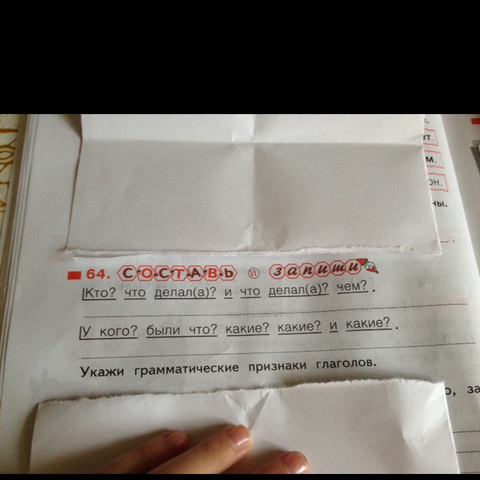 ат.
м.
он.
ны.
64. СОСТАВЬ и запиши
Кто? что делал(а)? и что делал(а)? чем? .
У кого? были что? какие? какие? и какие? .
Укажи грамматические признаки глаголов.
о, за